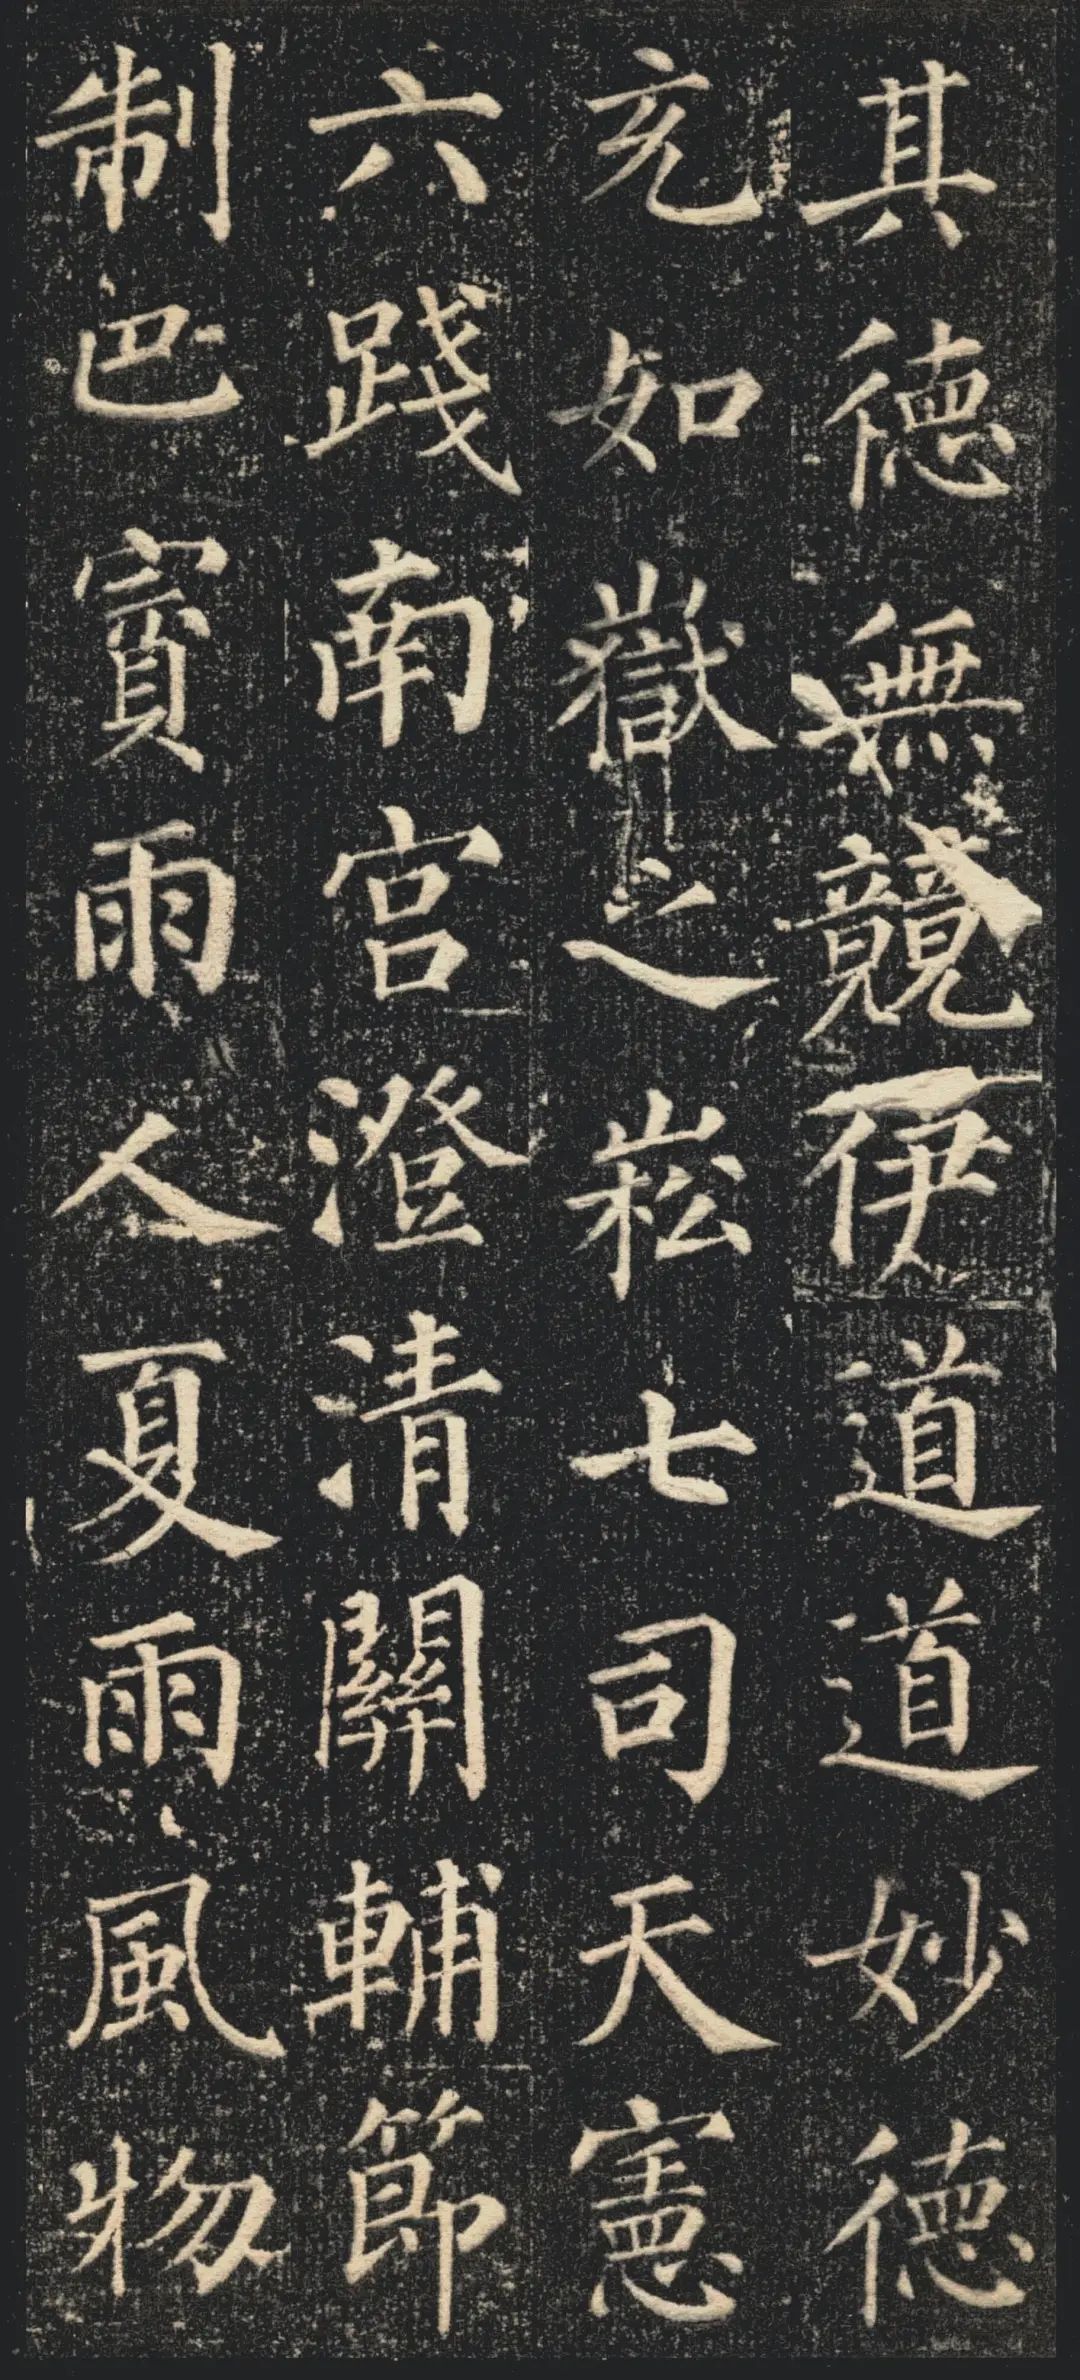 其德無競伊道道妙德
充如嶽之崧七司天憲
六踐南宮澄清關輔節
制巴賨雨人夏雨風物